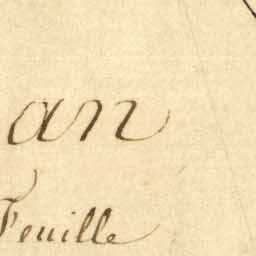 an
Feuille